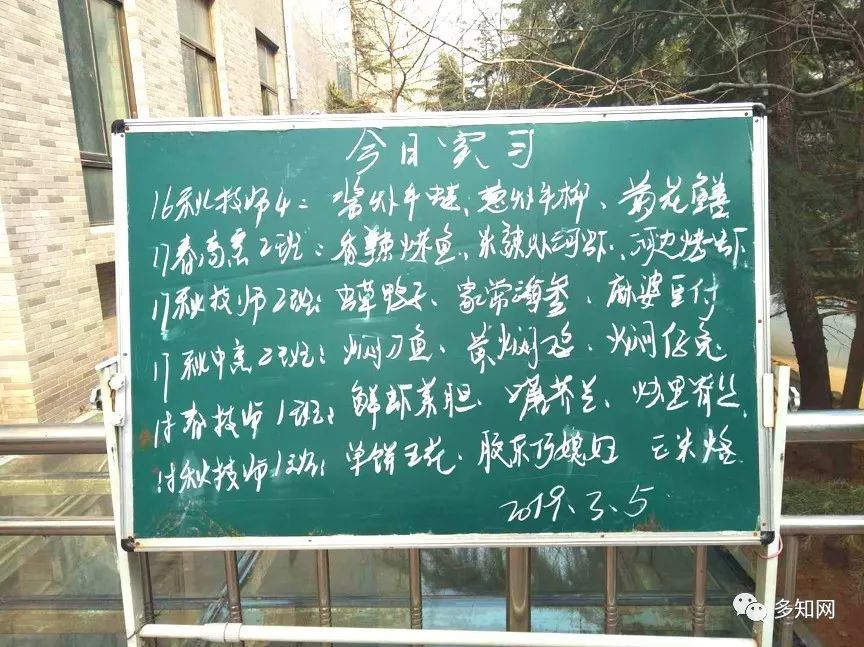 今日实习
16秋技师4: 酱炒牛蛙、葱炒牛柳、菊花鳝
17春高烹2班: 香辣烤鱼、朱辣炒河虾、河边烤虾
17秋技师2班: 虫草鸭子、家常海参、麻婆豆付
17秋中烹2班: 焖刀鱼、黄焖鸡、火焖仔兔
18春技师1班: 鲜虾菜胆、芥兰、炒里脊丝
18秋技师1班: 单饼王花、胶东巧媳妇 三米烧
2019.3.5
多知网